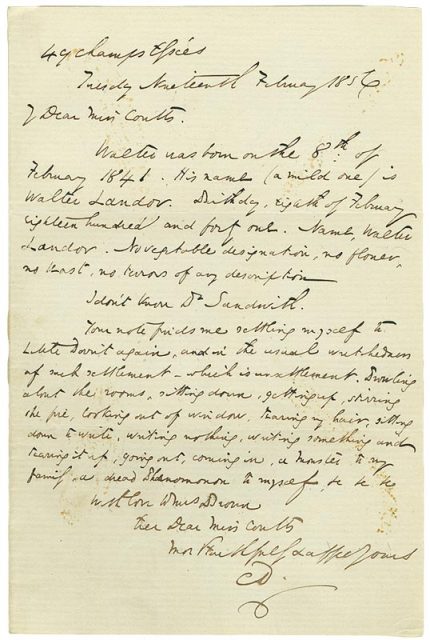 49 Champs Elysées
Tuesday Nineteenth February 1856
My Dear Miss Coutts.
Walter was born on the 8th. of
February 1841. His name (a mild one) is
Walter Landor. Birthday, eighth of February
eighteen hundred and forty one. Name, Walter
Landor. No vegetable designation, no flower,
no toast, no terrors of any description
I don't know Dr Sandwith.
Your note finds me settling myself to
Little Dorrit again, and in the usual wretchedness
of such settlement – which is unsettlement. Prowling
about the rooms, sitting down, getting up, stirring
the fire, looking out of window, tearing my hair, sitting
down to write, writing nothing, writing something and
tearing it up, going out, coming in, a Monster to my
family, a dread Phaenomenon to myself, &c &c &c
With love to Mrs Brown
Ever Dear Miss Coutts
Most Faithfully & affecy Yours
CD.